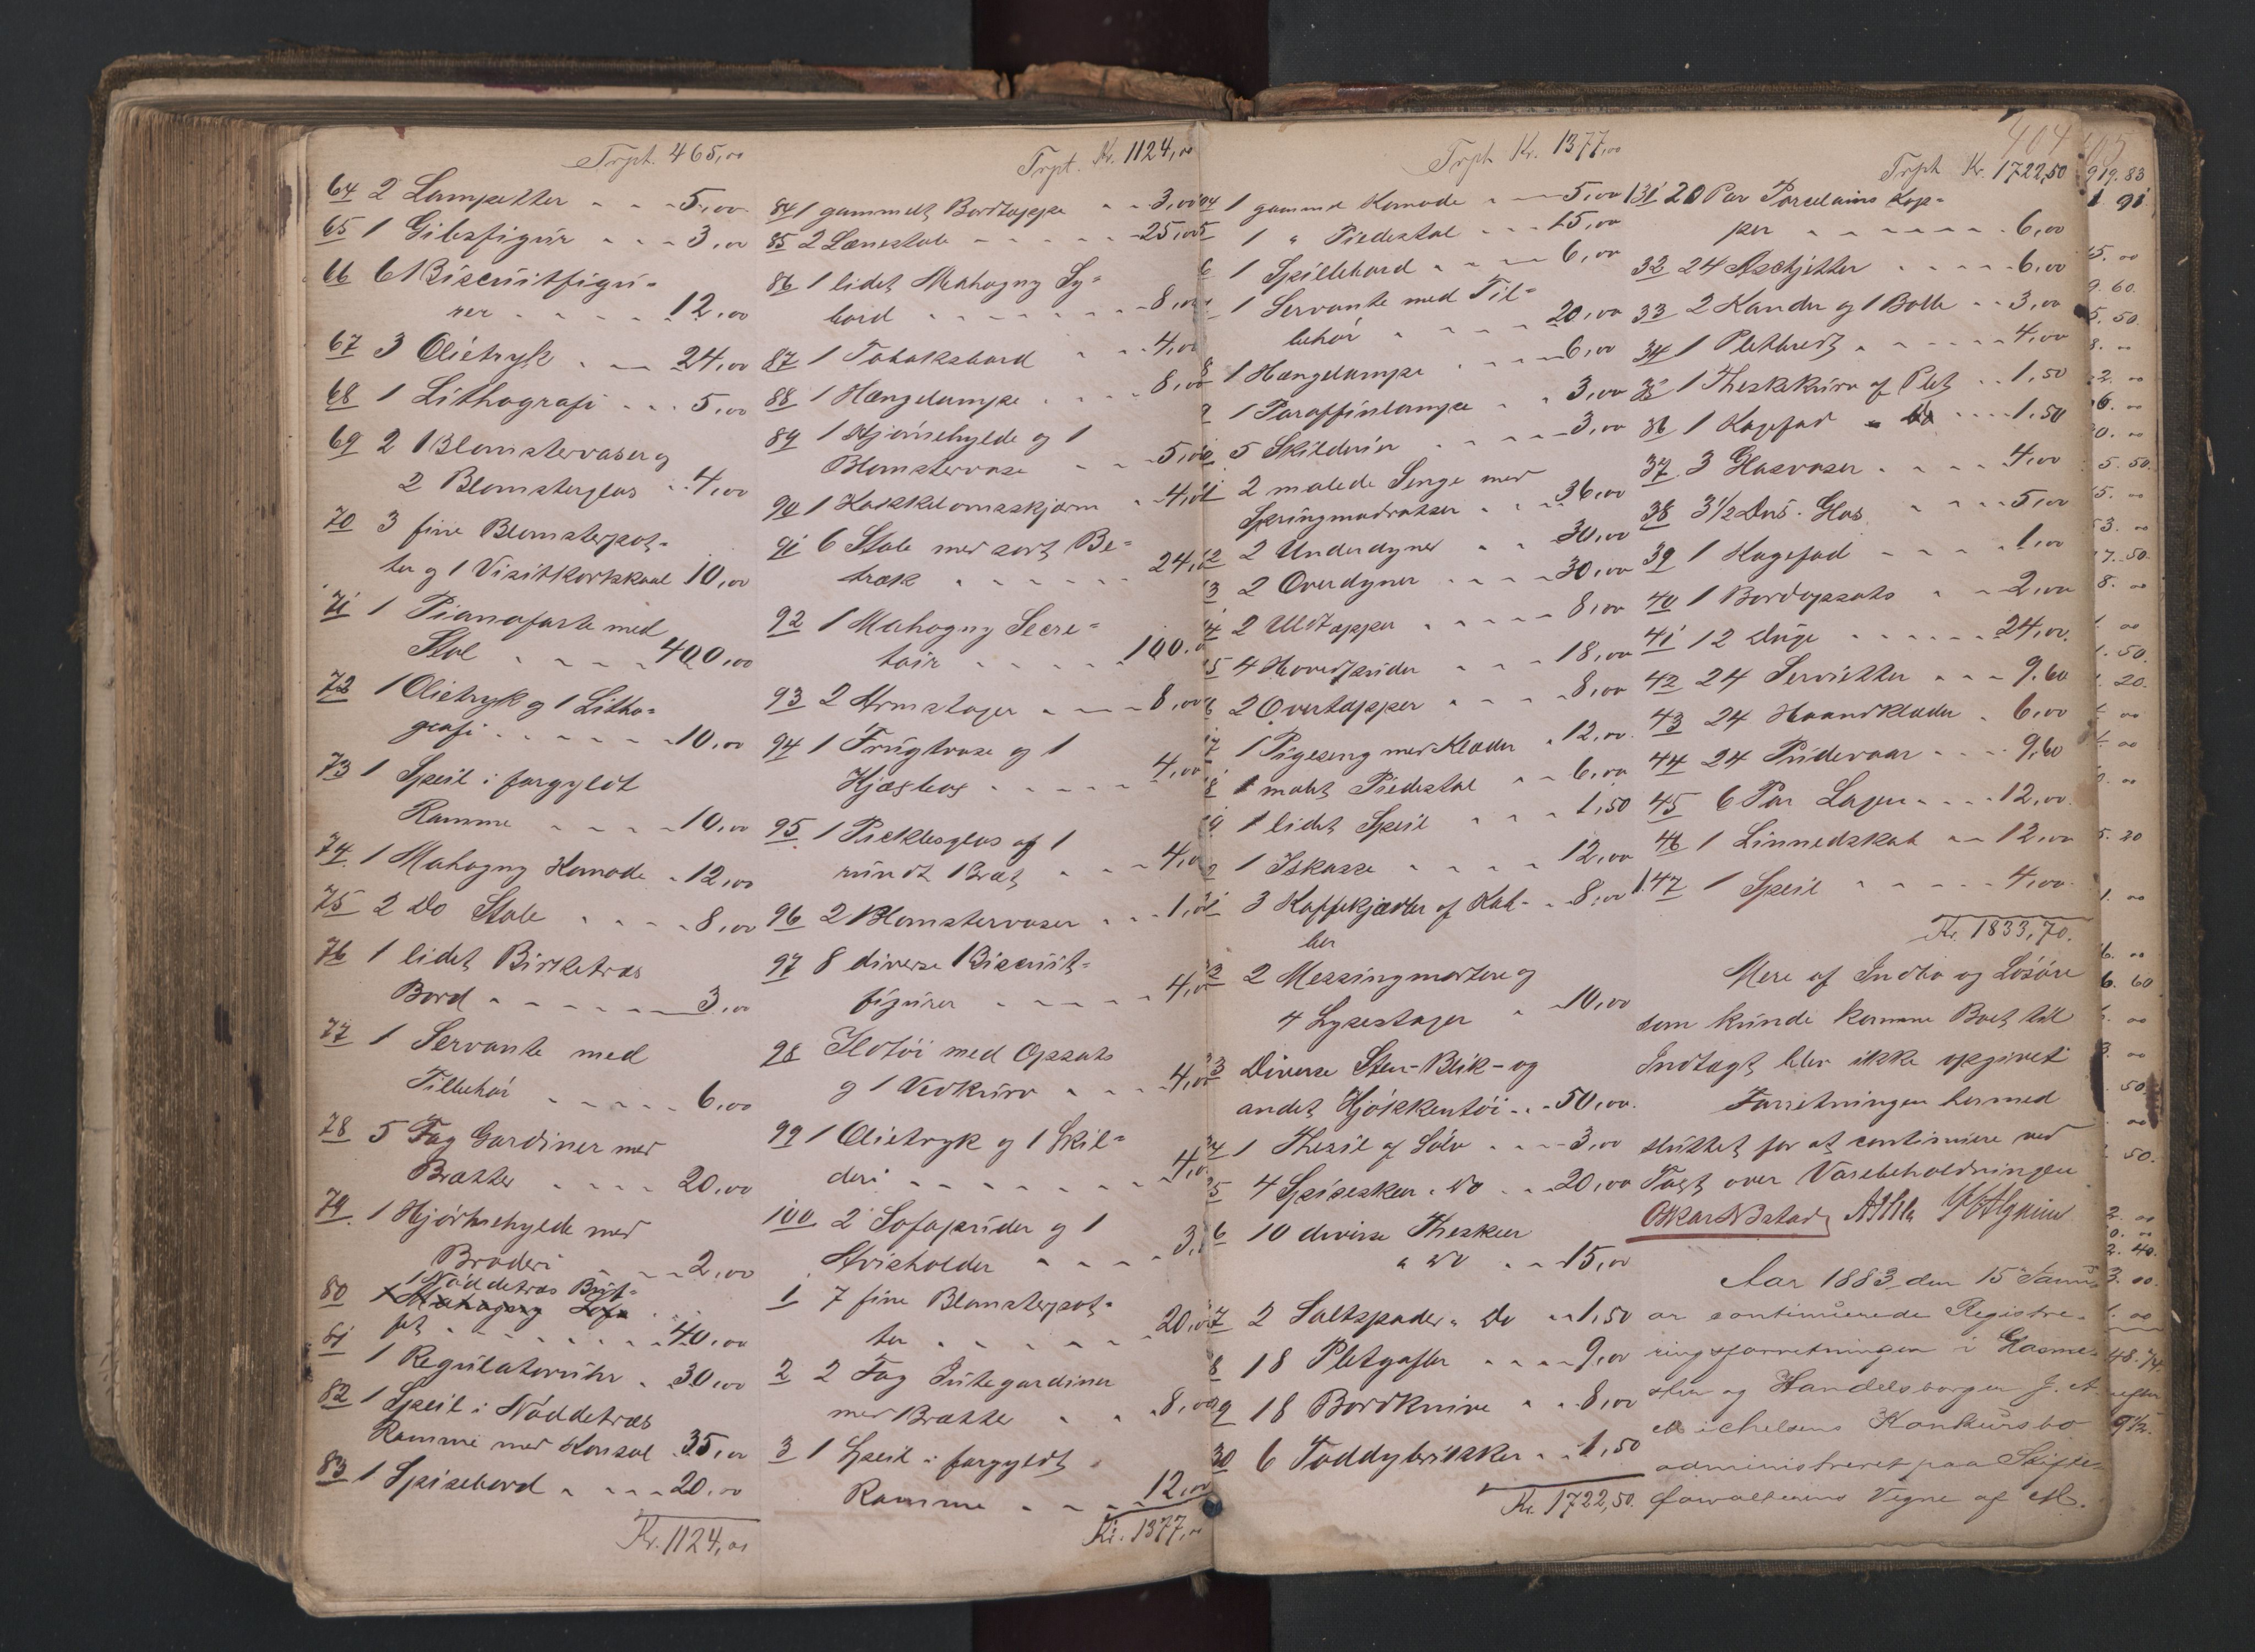 Trpt. 465,00
64 2 Lampetter - - - 5,00
65 1 Gibsfigur - - - 3,00
66 6 Biscuitfigu-
rer - - - - - 12,00
67 3 Olietryk - - 24,00
68 1 Lithografi - - - 5,00
69 2 Blomstervaser og
2 Blomsterglas - - 4,00
70 3 fine Blomsterpot-
ter og 1 Visitkortskaal 10,00
71 1 Pianoforte med
Stol - - - - 400,00
72 1 Olietryk og 1 Litho-
grafi - - - - - 10,00
73 1 Speil i forgyldt
Ramme - - - - 10,00
74 1 Mahogny Komode - 12,00
75 2 Do Stole - - - - 8,00
76 1 lidet Birketræs
Bord - - - - - 3,00
77 1 Servante med
Tilbehør - - - - - 6,00
78 5 Fag Gardiner med
Brætter - - - - 20,00
79 1 Hjørnehylde med
Broderi - - - 2,00
80 1 Nøddetræs Buf-
1 Mahogny Sofa
fet - - - - - - - 40,00
81 1 Regulatoruhr - 30,00
82 1 Speil i Nøddetræs
Ramme med Konsol 35,00
83 1 Spisebord - - - - 20,00
Kr. 1124,00
Trpt. Kr. 1124,00
84 1 gammelt Bordtæppe - - 3,00
85 2 Lænestole - - - - - 25,00
86 1 lidet Mahogny Sy-
bord - - - - - - - 8,00
87 1 Tobaksbord - - - 4,00
88 1 Hængelampe - - - - 8,00
89 1 Hjørnehylde og 1
Blomstervase - - - 5,00
90 1 Kakkelovnsskjærm - 4,00
91 6 Stole med sort Be-
træk - - - - - - 24,
92 1 Mahogny Secre-
tair - - - - - 100.
93 2 Armstager - - - 8,00
94 1 Frugtvase og 1
- - - - - 4,00
95 1 Picklesglas og 1
rundt Bræt - - - 4,0
96 2 Blomstervaser - - - 1,
97 8 diverse Biscuit-
figurer - - - - - 4,0
98 Ildtøi med Opsats
og 1 Vedkurv - - - 4,00
99 1 Olietryk og 1 Skil-
deri - - - - - - - 4,0
100 2 Sofapuder og 1
Avisholder - - - - 3,
1 7 fine Blomsterpot-
ter - - - - - - 20,
2 2 Fag Jutegardiner
med Brætter - - - 8,00
3 1 Speil i forgyldt
Ramme - - - 12,00
Kr. 1377,00
Trpt. Kr. 1377,00
04 1 gammel Komode - - 5,00
5 1 " Piedestal - - - 15,00
6 1 Spillebord - - - - 6,00
1 Servante med Til-
behør - - - - 20,00
8 1 Hængelampe - - - 6,00
9 1 Paraffinlampe - - 3,00
5 Skilderier - - - - - 3,00
2 malede Senge med
Springmadratser - - - 36,00
12 2 Underdyner - - 30,00
3 2 Overdyner - - - - 30,00
4 2 Uldtæpper - - - - - 8,00
5 4 Hovedpuder - - - 18,00
6 2 Overtæpper - - - - 8,00
17 1 Pigeseng med Klæder - 12,00
8 1 malet Piedestal - - 6,00
9 1 lidet Speil - - - 1,50
1 Iskasse - - - - - 12,00
3 Kaffekjedler af Kob- - 8,00
ber
2 Messingmortere og
4 Lysestager - 10,00
3 Diverse Sten-Blik- og
andet Kjøkkentøi - - 50,00.
24 1 Thesil af Sølv - - - 3,00
25 4 Spiseskeer - Do - - 20,00
6 10 diverse Theskeer
" Do - - 15,00
7 2 Saltspader " Do - - 1,50
8 18 Pletgafler - - - - 9,00
9 18 Bordknive - - 8,00
30 6 Toddybrikker - - 1,50
Kr. 1722,50.
404
Trpt. Kr. 1722,50
131 20 Par Porcelains Kop-
per - - - - - - - 6,00
32 24 Aschjetter - - - - - 6,00
33 2 Kander og 1 Bolle - - 3,00
34 1 Pletbræt - - - - - 4,00
35 1 Theskekurv af Plet - - 1,50
36 1 Kagefad - Do - - - 1,50
37 3 Glasvaser - - - - 4,00
38 3 1/2 Dus. Glas - - - 5,00
39 1 Kagefad - - - - 1,00
40 1 Bordopsats - - - 2,00
41 12 Duge - - - - - - 24,00.
42 24 Servietter - - - 9,60
43 24 Haandklæder - 6,00
44 24 Pudevaar - - - 9,60
45 6 Par Lagen - - - - 12,00.
46 1 Linnedskab - - 12,00
147 1 Speil - - - - - 4,00.
Kr. 1833,70.
Mere af Indbo og Løsøre
som kunde komme Boet til
Indtægt blev ikke opgivet
Forretningen hermed
sluttet for at continuere ved
Tagt over Varebeholdningen
Aar 1883 den 15 Janu-
ar continuerede Registre-
ringsforretningen i Glasme-
ster og Handelsborger J. A.
Michelsens Konkursbo
administreret paa Skifte-
forvalterens Vegne af